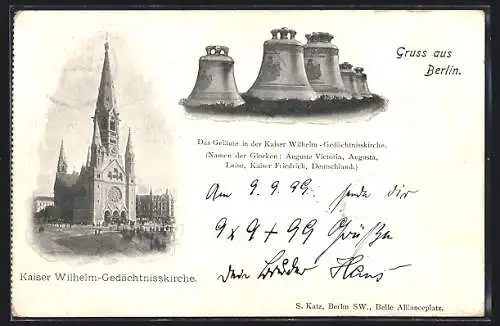 Gruss aus
Berlin.
Das Geläute in der Kaiser Wilhelm-Gedächtnisskirche.
(Namen der Glocken: Auguste Victoria, Augusta,
Luise, Kaiser Friedrich, Deutschland.)
Am 9. 9. 99. sende dir
9 x 9 + 99 Grüße
Dein Bruder Hans
Kaiser Wilhelm-Gedächtnisskirche.
S. Katz, Berlin SW., Belle Allianceplatz.